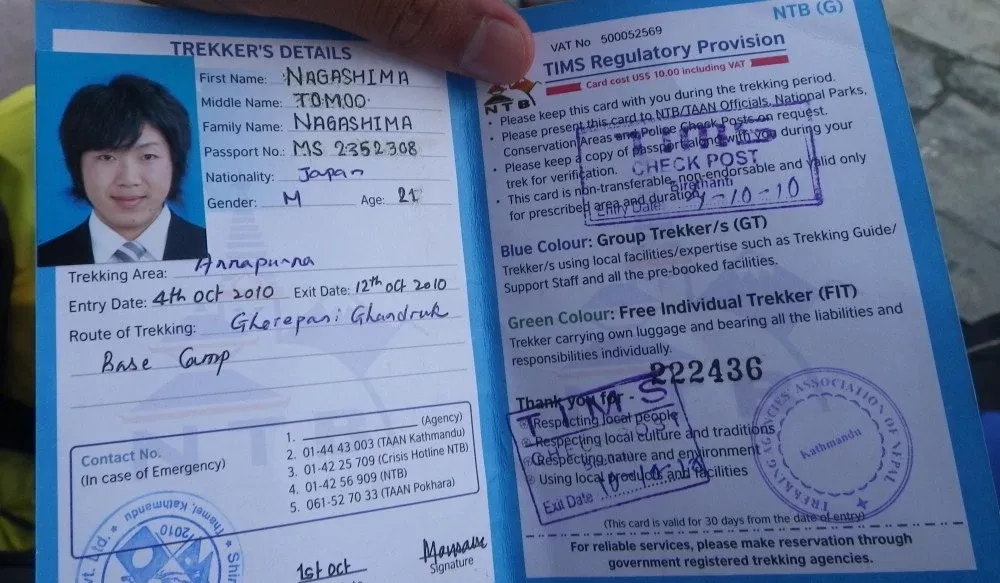 TREKKER'S DETAILS
First Name: NAGASHIMA
Middle Name: TOMOO
Family Name: NAGASHIMA
Passport No.: MS 2352308
Nationality: Japan
Gender: M Age: 21
Trekking Area: Annapurna
Entry Date: 4th Oct 2010 Exit Date: 12th Oct 2010
Route of Trekking: Ghorepani Ghandruk
Base Camp
Contact No.
(In case of Emergency)
1. (Agency)
2. 01-44 43 003 (TAAN Kathmandu)
3. 01-42 25 709 (Crisis Hotline NTB)
4. 01-42 56 909 (NTB)
5. 061-52 70 33 (TAAN Pokhara)
Thamel, Kathmandu
2010
1st Oct
Signature
NTB (G)
VAT No 500052569
TIMS Regulatory Provision
Card cost US$ 10.00 including VAT
NTB
• Please keep this card with you during the trekking period.
• Please present this card to NTB/TAAN Officials, National Parks,
Conservation Areas and Police Check Posts on request.
• Please keep a copy of passport along with you during your
trek for verification.
• This card is non-transferable, non-endorsable and valid only
for prescribed area and duration.
CHECK POST
Birethanti
Entry Date
Blue Colour: Group Trekker/s (GT)
Trekker/s using local facilities/expertise such as Trekking Guide/
Support Staff and all the pre-booked facilities.
Green Colour: Free Individual Trekker (FIT)
Trekker carrying own luggage and bearing all the liabilities and
responsibilities individually.
222436
Thank you for -
Respecting local people
Respecting local culture and traditions
Respecting nature and environment
Using local products and facilities
TIMS
Exit Date
TREKKING AGENCIES' ASSOCIATION OF NEPAL
Kathmandu
(This card is valid for 30 days from the date of entry)
For reliable services, please make reservation through
government registered trekking agencies.